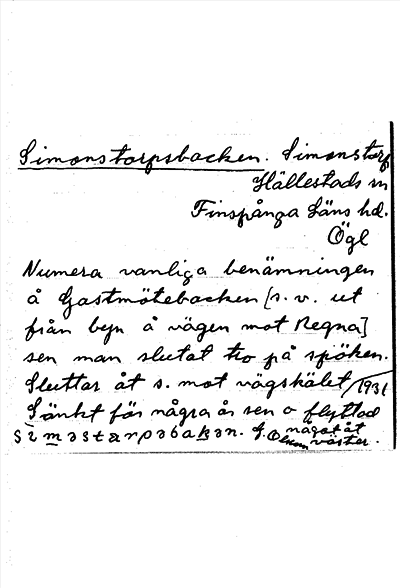 Simonstorpsbacken. Simonstorp
Hällestads sn
Finspånga läns hd.
Ögl
Numera vanliga benämningen
å Gastmötebacken [s. v. ut
från byn å vägen mot Regna]
sen man slutat tro på spöken.
Sluttar åt s. mot vägskälet / 1931
Sänkt för några år sen o flyttad
något åt
väster.